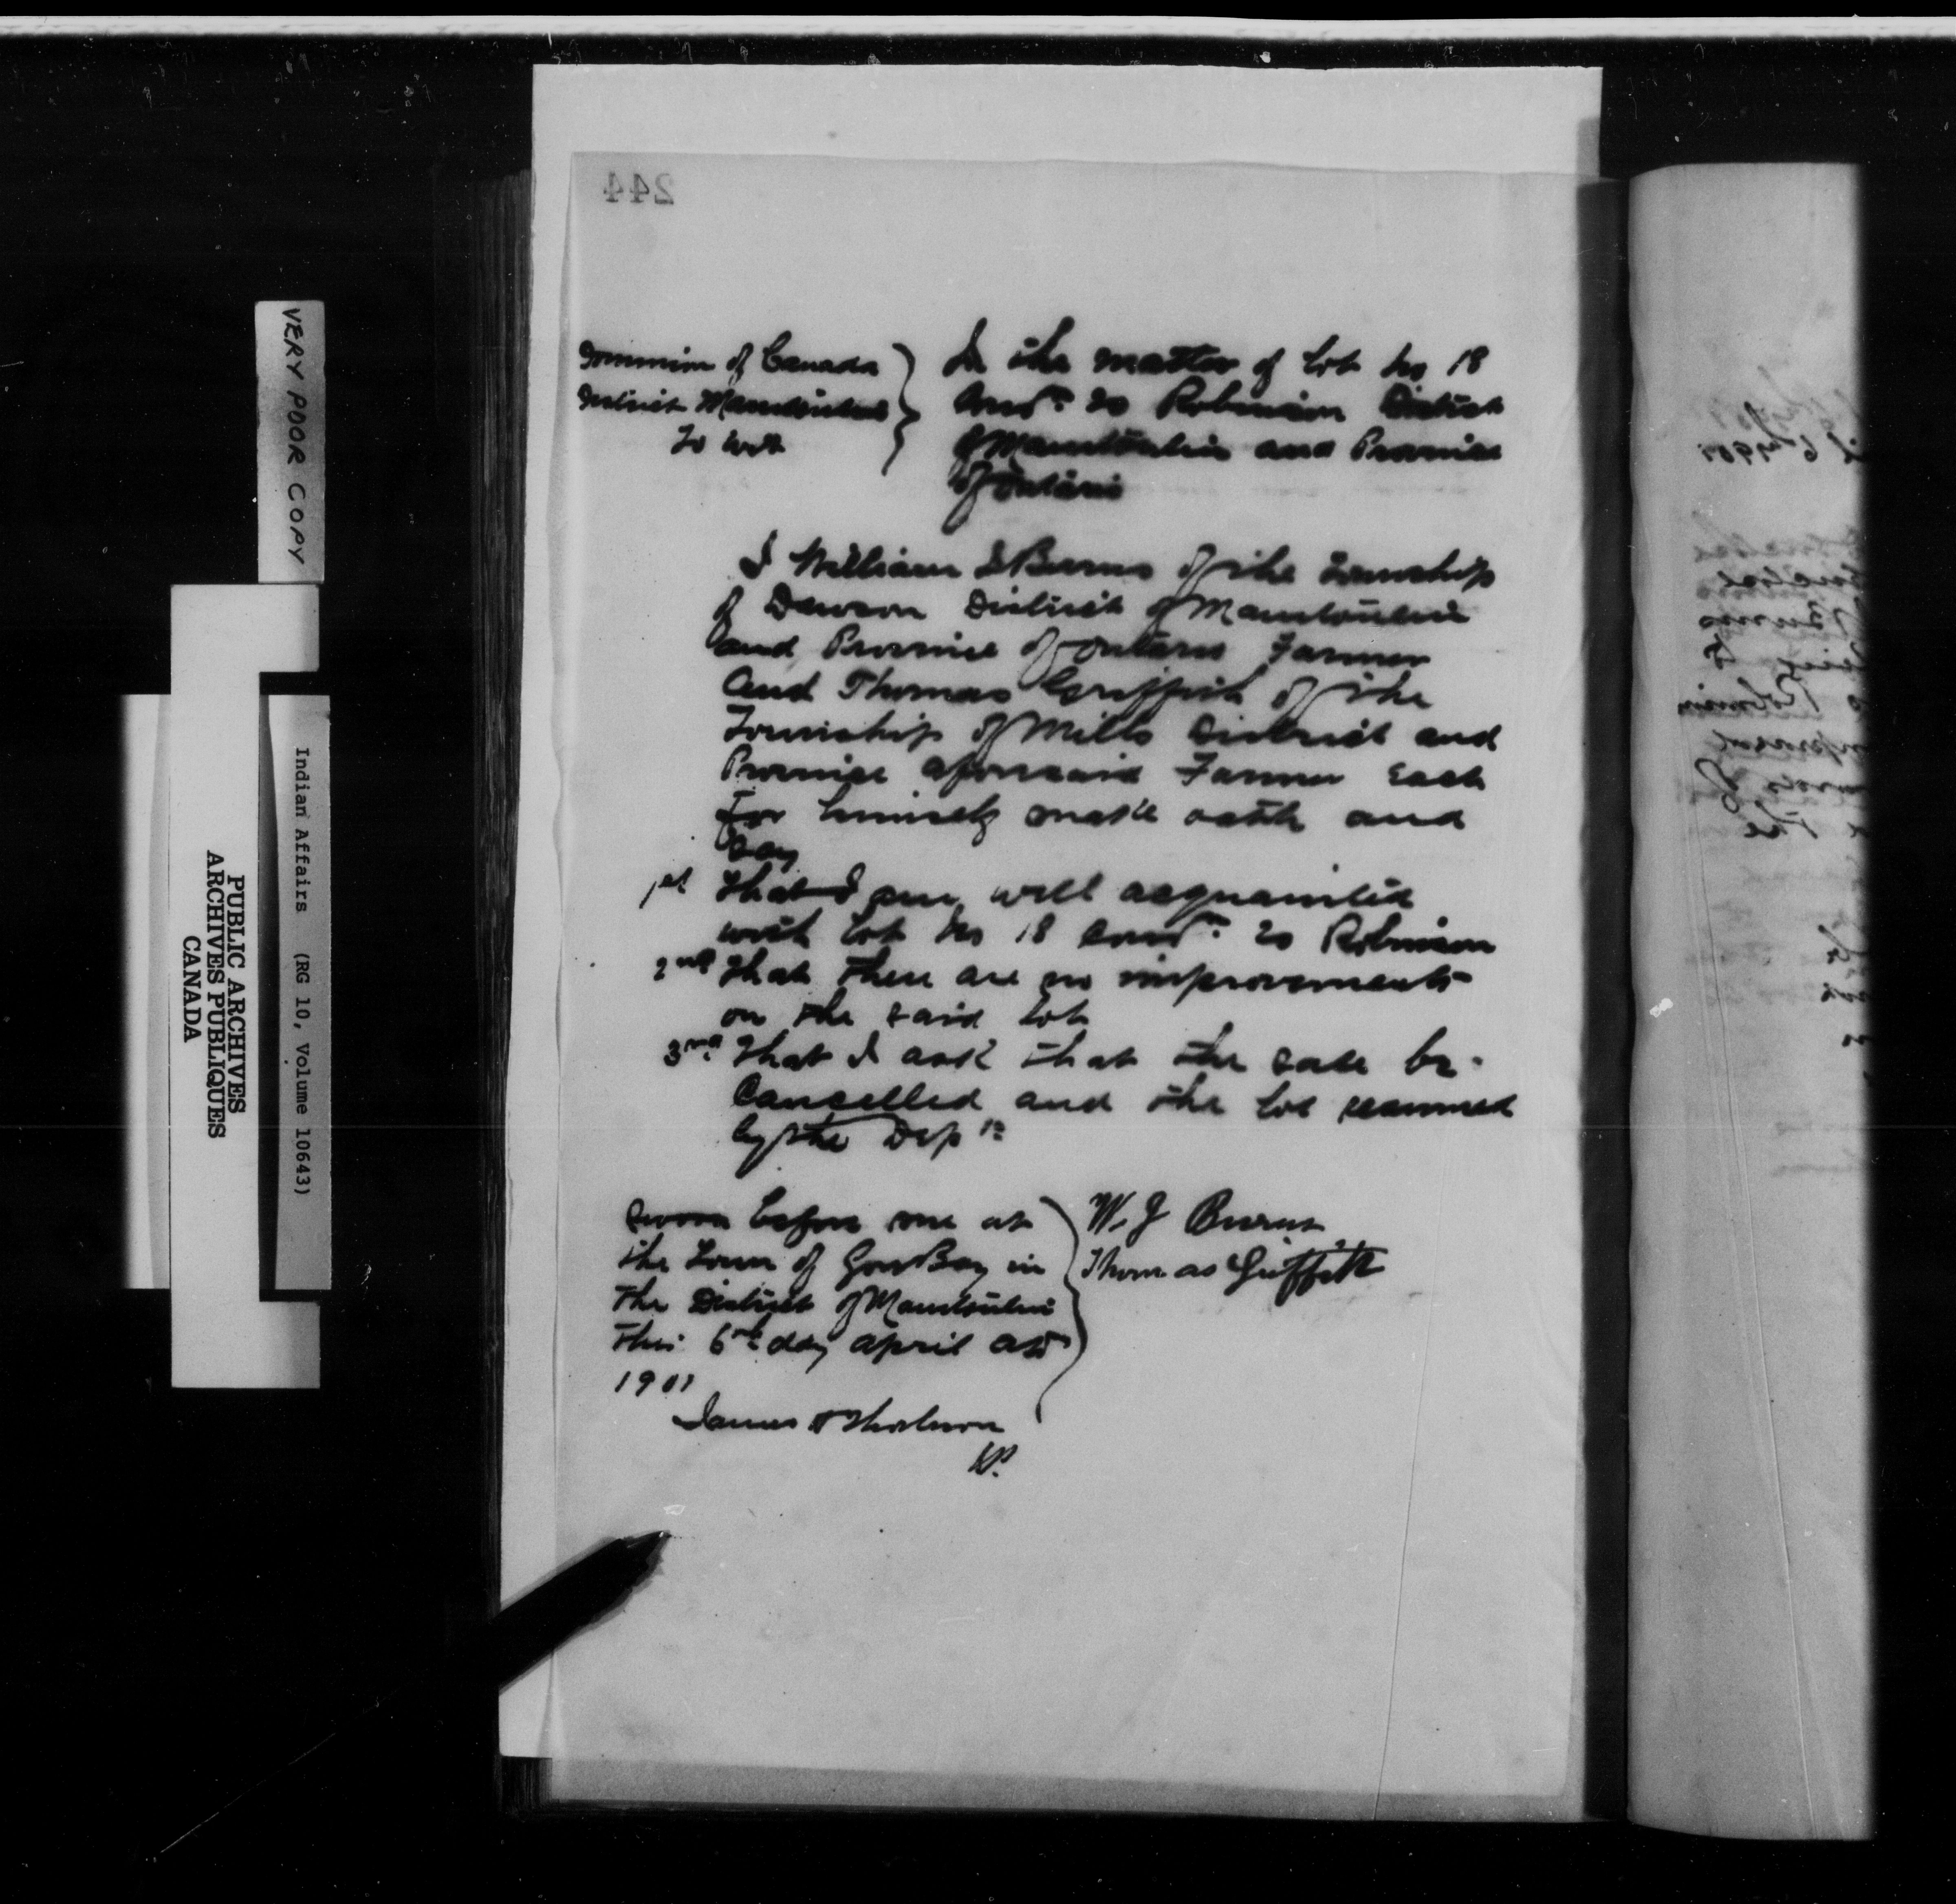 244
Dominion of Canada
District Manitoulin
To Wit
In the matter of Lot No 18
Cond. 20 Robinson District
of Manitoulin and Province
of Ontario
I William J Burns of the Township
of Dawson District of Manitoulin
and Province of Ontario Farmer
and Thomas Griffith of the
Township of Mills District and
Province aforesaid Farmer Each
For himself make oath and
Say
1st That I am well acquainted
with Lot No 18 Cond. 20 Robinson
2nd That there are no improvements
on the said Lot
3rd That I ask that the sale be
Cancelled and the Lot resumed
by the Dept
Sworn before me at
the Town of Gore Bay in
The District of Manitoulin
This 6th day april AD
1901
W. J Burns
Thomas Griffith
James
JP.
VERY POOR COPY
Indian Affairs (RG 10, Volume 10643)
PUBLIC ARCHIVES
ARCHIVES PUBLIQUES
CANADA